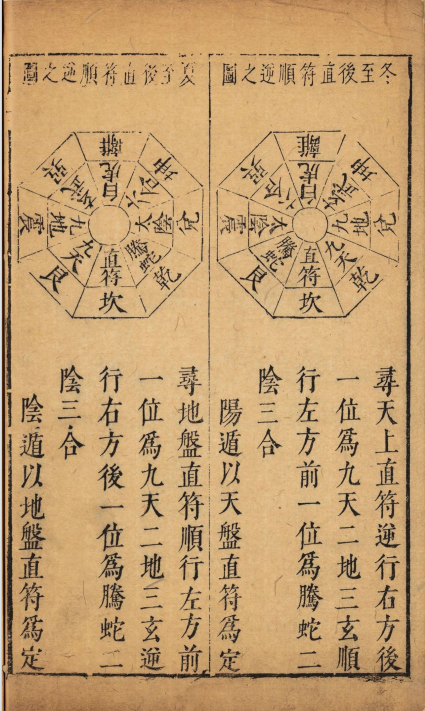 冬至後直符順逆之圖
離
坤
兌
乾
坎
艮
震
巽
白虎
玄武
九地
九天
直符
螣蛇
太陰
六合
尋天上直符逆行右方後
一位爲九天二地三玄順
行左方前一位爲騰蛇二
陰三合
陽遁以天盤直符爲定
夏至後直符順逆之圖
離
坤
兌
乾
坎
艮
震
巽
白虎
六合
太陰
螣蛇
直符
九天
九地
玄武
尋地盤直符順行左方前
一位爲九天二地三玄逆
行右方後一位爲騰蛇二
陰三合
陰遁以地盤直符爲定